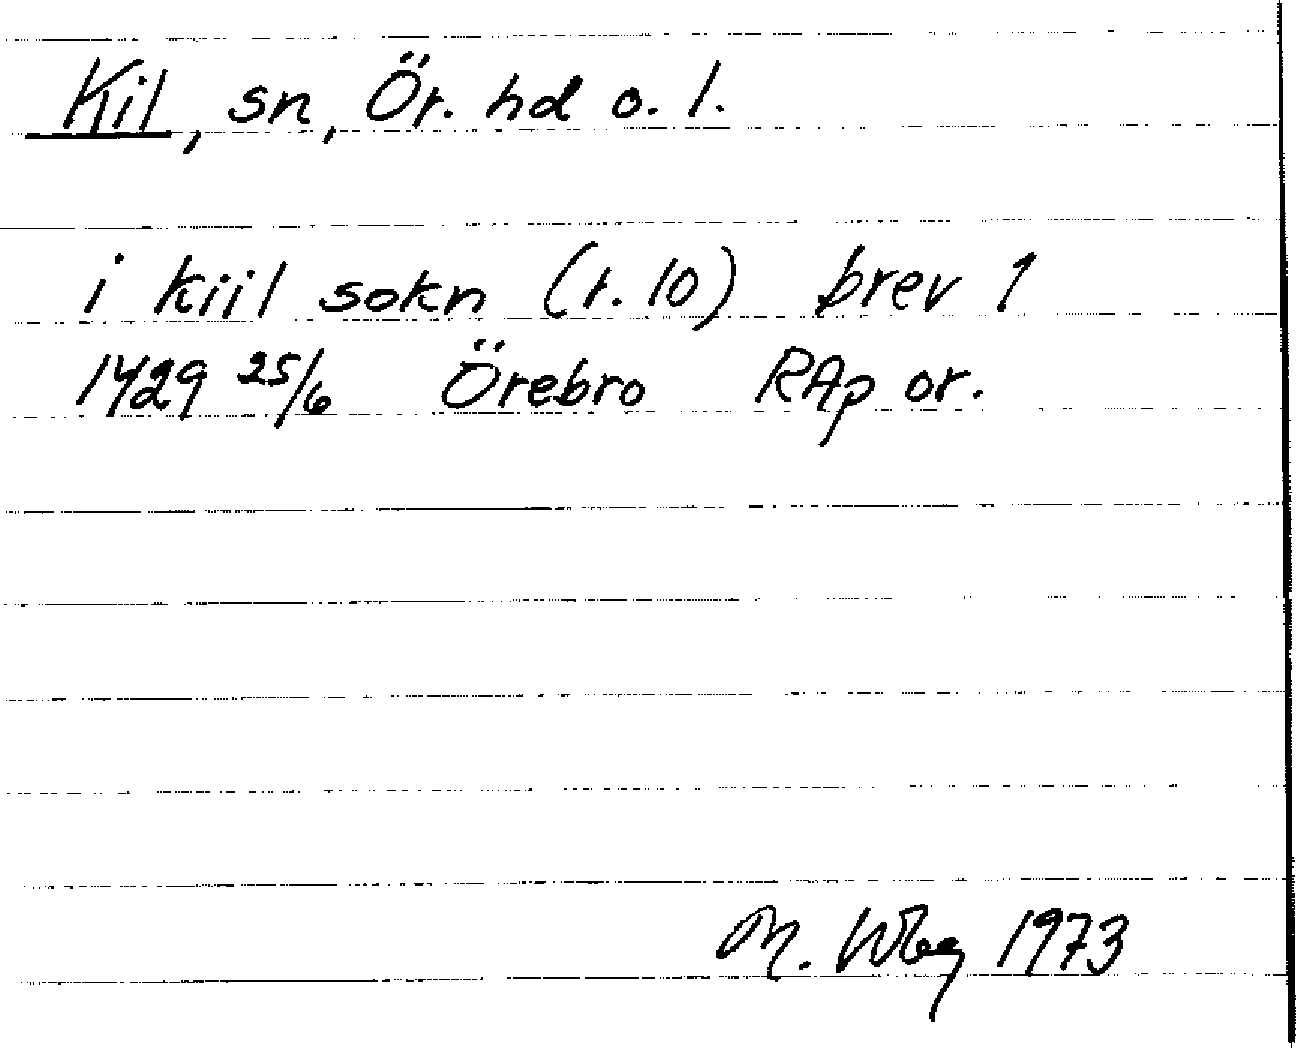 Kil, sn, Ör. hd o. l.
i kiil sokn (r. 10) brev 1
1429 25/6 Örebro RAp or.
M. Wbg 1973